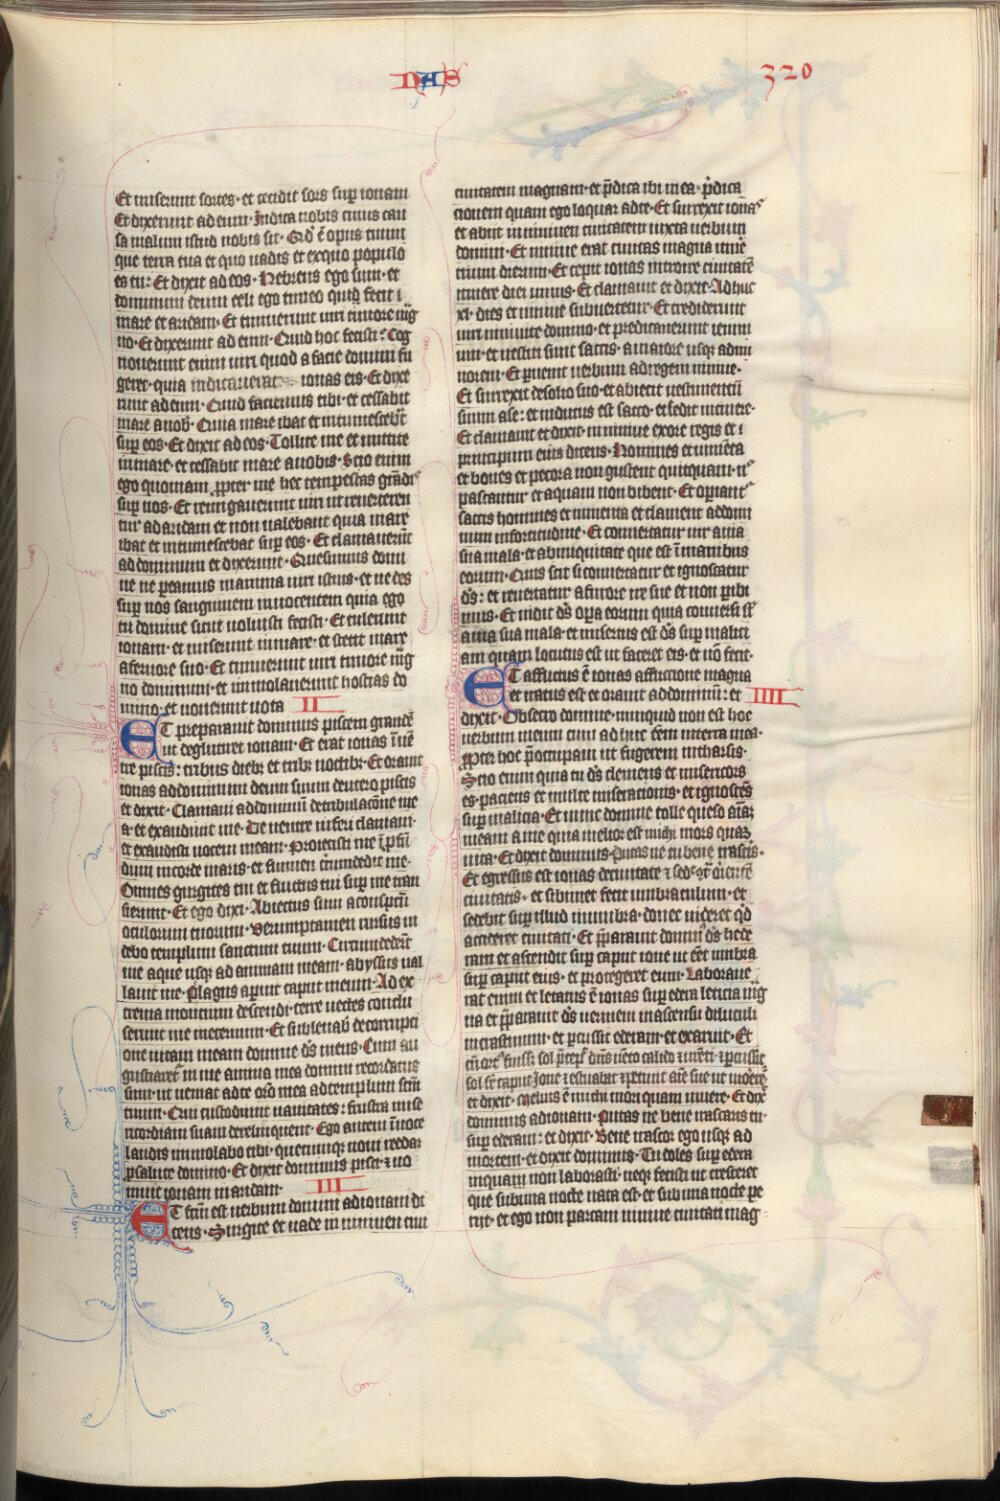 NAS
320
Et miserunt sortes· et cecidit sors sup ionam
Et dixerunt ad eum· Indica nobis cuius cau
sa malum istud nobis sit· Qd ē opus tuum
que terra tua et quo uadis et ex quo populo
es tu: Et dixit ad eos· Hebreus ego sum· et
dominum deum celi ego timeo quid fecit
mare et aridam· Et timuerunt uiri timore mag
no· Et dixerunt ad eum· Quid hoc fecisti? Cog
nouerunt enim uiri quod a facie domini fu
geret· quia indicauerat ionas eis· Et dixe
runt ad eum· Quid faciemus tibi· et cessabit
mare a nob· Quia mare ibat et intumescebat
sup eos· Et dixit ad eos· Tollite me et mittite
in mare· et cessabit mare a uobis· Scio enim
ego quoniam ppter me hec tempestas grādis
sup uos· Et remigauerunt uiri ut reuerteren
tur ad aridam et non ualebant quia mare
ibat et intumescebat sup eos· Et clamauerūt
ad dominum et dixerunt· Quesumus domi
ne ne peamus in anima uiri istius· et ne des
sup nos sanguinem innocentem quia ego
tu domine sicut uoluisti fecisti· Et tulerunt
ionam· et miserunt in mare· et stetit mare
a feruore suo· Et timuerunt uiri timore mag
no dominum· et immolauerunt hostias do
mino· et uouerunt uota II
ET preparauit dominus piscem grandē
ut deglutiret ionam· Et erat ionas ī uen
tre piscis: tribus dieb; et trib; noctib;· Et orauit
ionas ad dominum deum suum de utero piscis
et dixit· Clamaui ad dominū de tribulacōne me
a· et exaudiuit me· De uentre inferi clamaui·
et exaudisti uocem meam· Proiecisti me ī pfū
dum in corde maris· et flumen circumdedit me·
Omnes gurgites tui et fluctus tui sup me tran
sierunt· Et ego dixi· Abiectus sum a conspectu
oculorum tuorum· Verumptamen rursus ui
debo templum sanctum tuum· Circumdederūt
me aque usq; ad animam meam· abyssus ual
lauit me· Pelagus apuit caput meum· Ad ex
trema moncium descendi· terre uectes conclu
serunt me in eternum· Et subleuab de corrupti
one uitam meam domine ds meus· Cum an
gustiaret in me anima mea domini recordatus
sum· ut ueniat ad te orō mea ad templum scm
tuum· Qui custodiunt uanitates: frustra mise
ricordiam suam derelinquent· Ego autem ī uoce
laudis immolabo tibi· quecumq; noui reddar
p salute domino· Et dixit dominus pisci: et uo
muit ionam in aridam· III
ET fcm est uerbum domini ad ionam di
cens· Surge et uade in niniuen ciui
ciuitatem magnam· et pdica ibi in ea pdica
cionem quam ego loquar ad te· Et surrexit ionas
et abiit in niniuen ciuitatem iuxta uerbum
domini· Et niniue erat ciuitas magna itine
trium dierum· Et cepit ionas introire ciuitatē
itinere diei unius· Et clamauit et dixit· Ad huc
xl· dies et niniue subuertetur· Et crediderunt
uiri niniuite domino· et predicauerunt ieiuni
um· et uestiti sunt saccis· a maiore usq; ad mi
norem· Et puenit uerbum ad regem niniue·
Et surrexit de solio suo· et abiecit uestimentū
suum a se: et indutus est sacco· et sedit in cinere·
Et clamauit et dixit· in niniue ex ore regis et
principum eius dicens· Homines et iumēta
et boues et pecora non gustent quicquam· n
pascantur et aquam non bibent· Et opiant
saccis homines et iumenta et clament ad domi
num in fortitudine· Et conuertatur uir a uia
sua mala· et ab iniquitate que est ī manibus
eorum· Quis scit si conuertatur et ignoscatur
ds: et reuertatur a furore ire sue et non pibi
mus· Et uidit ds opa eorum quia conuersi st
a uia sua mala· et misertus est ds sup malici
am quam locutus est ut faceret eis· et nō fecit·
ET afflictus ē ionas afflictione magna
et iratus est· et orauit ad dominū: et IIII
dixit· Obsecro domine· nunquid non est hoc
uerbum meum cum ad huc eem in terra mea·
Ppter hoc poccupaui ut fugerem in tharsis·
Scio enim quia tu ds clemens et misericors
es· paciens et multe miserationis· et ignoscēs
sup malicia· Et nunc domine tolle queso aīaz
meam a me quia melior est michi mors quaz
uita· Et dixit dominus· putas ne tu bene irasceris·
Et egressus est ionas de ciuitate
ciuitatis· et sibimet fecit umbraculum· et
sedebat sup illud in umbra· donec uideret qd
accideret ciuitati· Et pparauit domin ds hede
ram et ascendit sup caput ione ut eēt umbra
sup caput eius· et protegeret eum· Laboraue
rat enim et letatus ē ionas sup edera leticia mag
na et pparauit ds uermem in ascensu diluculi
in crastinum· et pcussit ederam· et exaruit· Et
et dixit· melius ē michi mori quam uiuere· Et dix
dominus ad ionam· Putas ne bene irascaris tu·
sup ederam: et dixit· Bene irascor ego usq; ad
mortem· et dixit dominus· Tu doles sup edera
in quam non laborasti· neq; fecisti ut cresceret
que sub una nocte nata est· et sub una nocte pe
riit· et ego non parcam niniue ciuitati mag